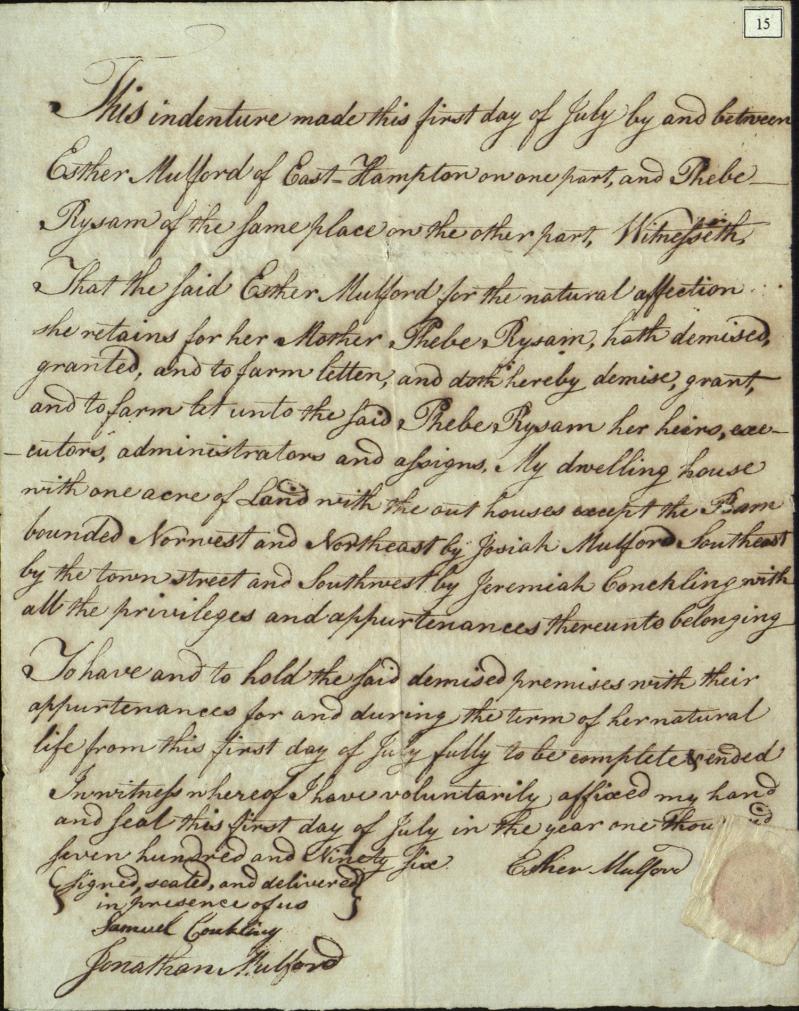 15
This indenture made this first day of July by and between
Esther Mulford of East-Hampton on one part, and Phebe
Rysam of the same place on the other part, Witnesseth,
That the said Esther Mulford for the natural affection
she retains for her Mother Phebe Rysam, hath demised,
granted, and to farm letten, and doth hereby demise, grant,
and to farm let unto the said Phebe Rysam her heirs, exe-
-cutors, administrators and assigns, My dwelling house
with one acre of Land with the out houses except the Barn
bounded Norwest and Northeast by Josiah Mulford Southeast
by the town street and Southwest by Jeremiah Conckling with
all the privileges and appurtenances thereunto belonging
To have and to hold the said demised premises with their
appurtenances for and during the term of her natural
life from this first day of July fully to be complete & ended
In witness whereof I have voluntarily affixed my hand
and seal this first day of July in the year one
seven hundred and Ninety six Esther Mulford
Signed, sealed, and delivered
in presence of us
Samuel Conkling
Jonathan Mulford